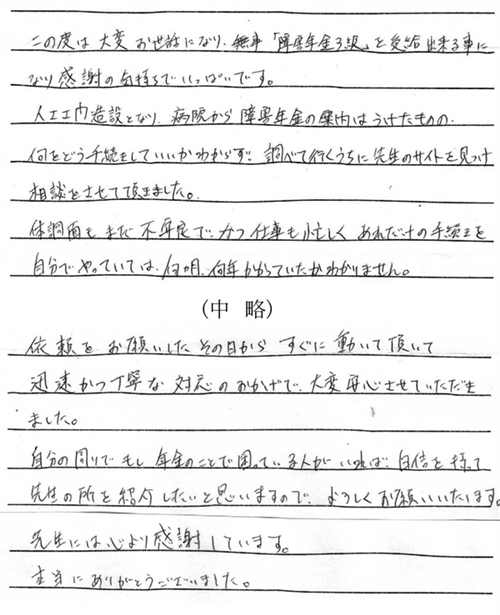 この度は大変お世話になり、無事「障害年金3級」を受給出来る事に
なり感謝の気持ちでいっぱいです。
人工肛門造設となり、病院から障害年金の案内はうけたものの、
何をどう手続をしていいかわからず、調べて行くうちに先生のサイトを見つけ
相談をさせて頂きました。
体調面もまだ不良で、かつ仕事も忙しく あれだけの手続きを
自分でやっていては、何ヵ月、何年かかっていたかわかりません。
(中 略)
依頼をお願いしたその日から すぐに動いて頂いて
迅速かつ丁寧な対応のおかげで、大変安心させていただき
ました。
自分の周りでもし年金のことで困っている人がいれば、自信を持って
先生の所を紹介したいと思いますので、よろしくお願いいたします。
先生には心より感謝しています。
本当にありがとうございました。